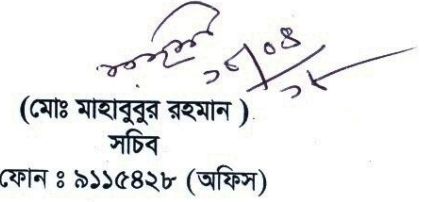 (মোঃ মাহাবুবুর রহমান )
সচিব
ফোন ঃ ৯১১৫৪২৮ (অফিস)